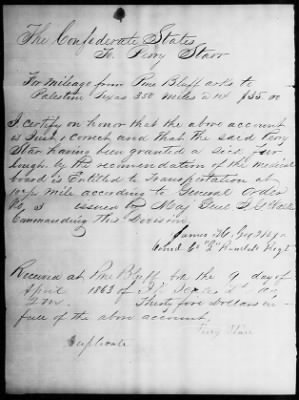 The Confederate States
To Perry Starr
For mileage from Pine Bluff arks to
Palestine Texas 350 miles a 10¢ $35.00
I certify on honor that the above account
is Just & Correct and that the said Perry
Starr having been granted a Sick Fur-
lough by the recomendation of the medical
board is Entitled to Transportation at
10¢ p mile according to General Order
No 3 issued by Maj Genl
Commanding This Division
James
Comd Co "L" Regt
Received at Pine Bluff Ark the 9 day of
April 1863 of
Thirty five Dollars in
full of the above account.
Perry Starr
Duplicate